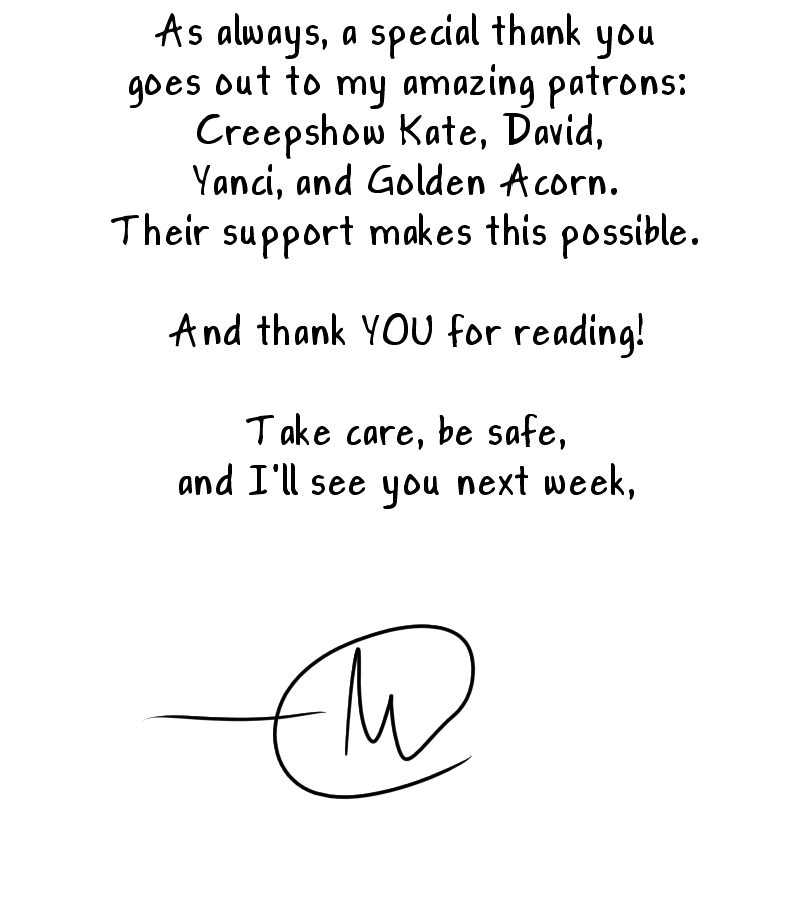 As always, a special thank you
goes out to my amazing patrons:
Creepshow Kate, David,
Yanci, and Golden Acorn.
Their support makes this possible.
And thank YOU for reading!
Take care, be safe,
and I'll see you next week,